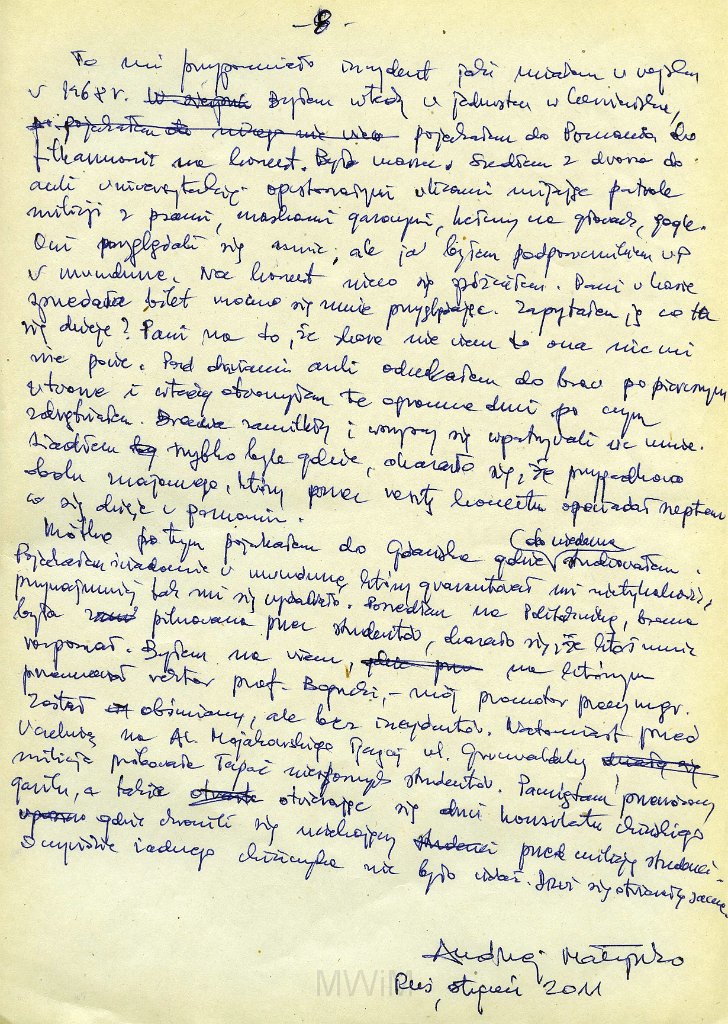 - 8 -
To mi przypomniało incydent jaki miałem w wojsku
w 1968 r. W sierpniu Byłem wtedy w jednostce w
pojechałem do nic pojechałem do Poznania do
filharmonii na koncert. Było Szedłem z dworca do
auli uniwersyteckiej opustoszałymi ulicami mijając patrole
milicji z psami, maskami gazowymi, hełmy na głowach, gogle.
Oni przyglądali się mnie, ale ja byłem podporucznikiem WP
w mundurze. Na koncert nieco się spóźniłem. Pani w kasie
sprzedała bilet mocno się mnie przyglądając. Zapytałem ją co tu
się dzieje? Pani na to, że skoro nie wiem to ona nic mi
nie powie. Pod drzwiami auli odczekałem do braw po pierwszym
utworze i wtedy otworzyłem te ogromne drzwi po czym
Brawa zamilkły i wszyscy się wpatrywali we mnie.
Siadłem szybko byle gdzie, okazało się, że przypadkowo
obok znajomego, który przez resztę koncertu opowiadał szeptem
co się dzieje w Poznaniu.
Krótko po tym pojechałem do Gdańska gdzie (do niedawna studiowałem.
Pojechałem świadomie w mundurze, który gwarantował mi nietykalność,
przynajmniej tak mi się wydawało. Poszedłem na Politechnikę, brama
była pilnowana przez studentów, okazało się, że ktoś mnie
rozpoznał. Byłem na wiecu, na którym
przemawiał rektor prof. Bogucki, - mój promotor pracy mgr.
Został obśmiany, ale bez incydentów. Natomiast przed
Uczelnią na Al. Majakowskiego ul. Grunwaldzką
milicja próbowała łapać studentów. Pamiętam
gazu, a także otwierające się drzwi konsulatu chińskiego
gdzie chronili się uciekający przed milicją studenci.
żadnego chińczyka nie było widać. Drzwi się otwierały same.
Andrzej Małyszko
styczeń 2011
MWiM